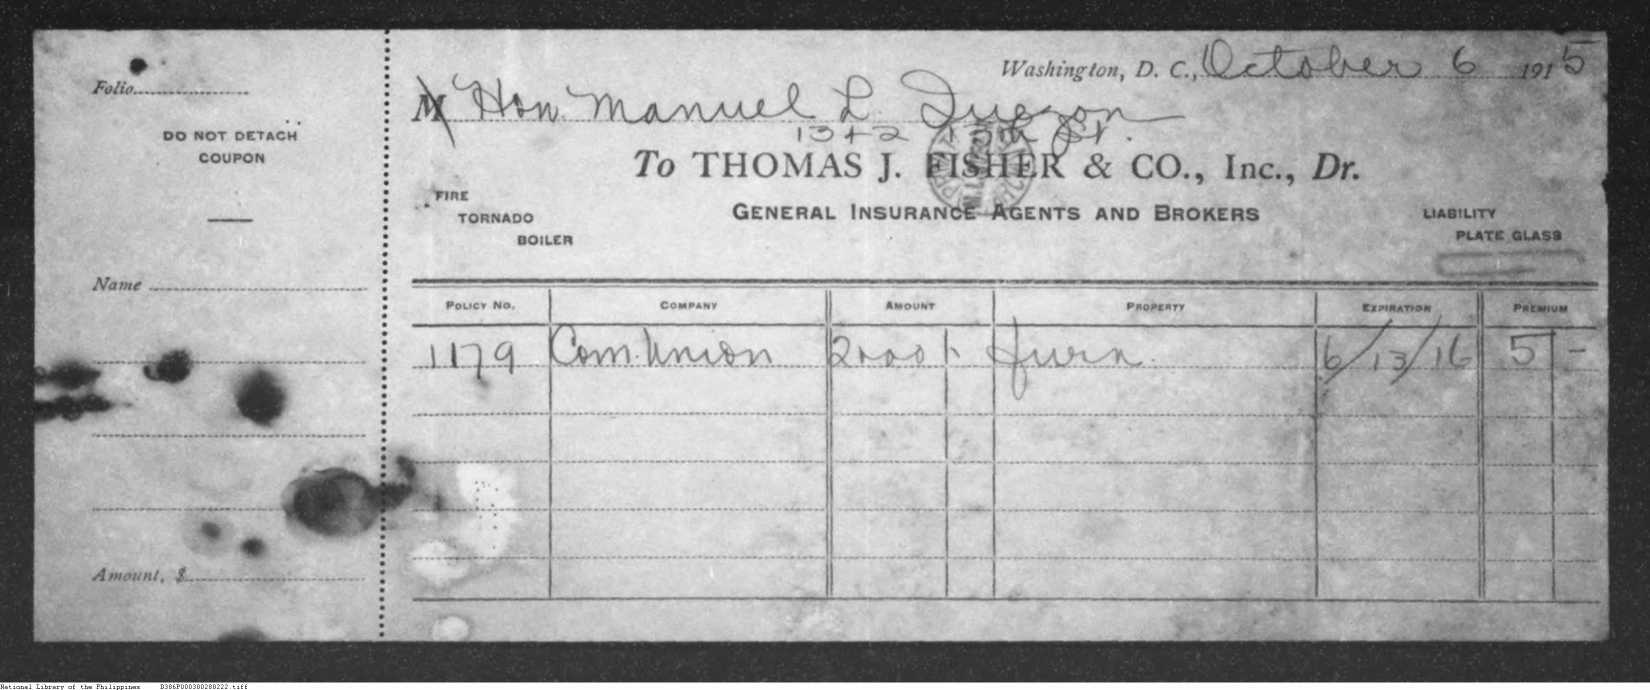 Folio
DO NOT DETACH
COUPON
Name
Amount, $
Washington, D. C., October 6 1915
M Hon. Manuel L. Quezon
1342 15th St.
To THOMAS J. FISHER & CO., Inc., Dr.
GENERAL INSURANCE AGENTS AND BROKERS
FIRE
TORNADO
BOILER
LIABILITY
PLATE GLASS
POLICY NO. COMPANY AMOUNT PROPERTY EXPIRATION PREMIUM
1179 Com. Union 2000 Furn. 6/13/16 5 -
National Library of the Philippines B386P000300280222.tiff